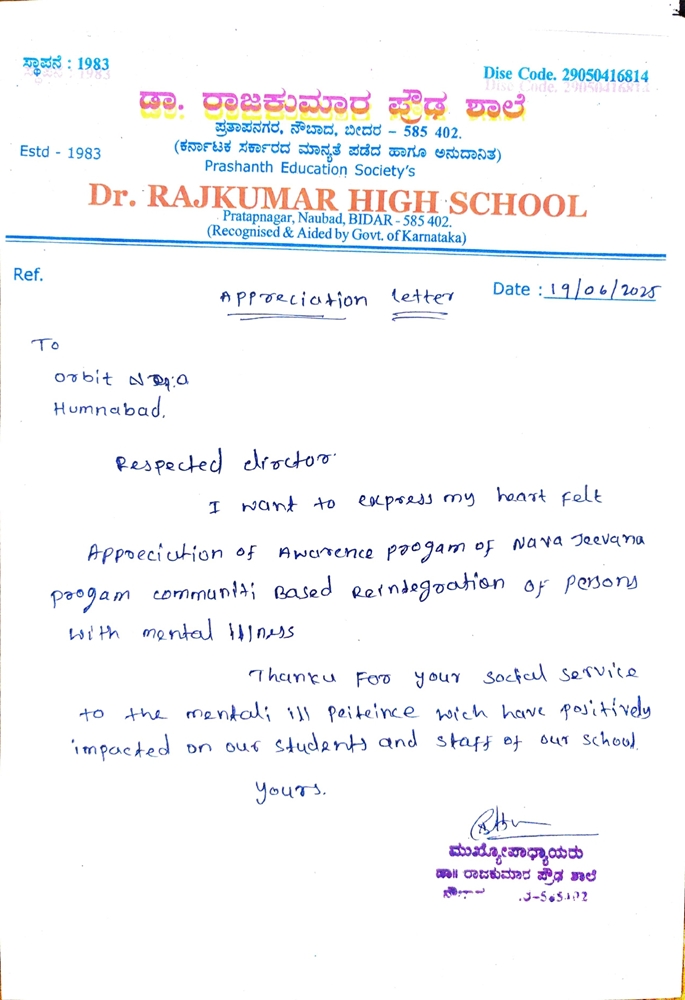 ಸ್ಥಾಪನೆ : 1983
Dise Code. 29050416814
ಡಾ. ರಾಜಕುಮಾರ ಪ್ರೌಢ ಶಾಲೆ
ಪ್ರತಾಪನಗರ, ನೌಬಾದ, ಬೀದರ – 585 402.
Estd - 1983
(ಕರ್ನಾಟಕ ಸರ್ಕಾರದ ಮಾನ್ಯತೆ ಪಡೆದ ಹಾಗೂ ಅನುದಾನಿತ)
Prashanth Education Society's
Dr. RAJKUMAR HIGH SCHOOL
Pratapnagar, Naubad, BIDAR - 585 402.
(Recognised & Aided by Govt. of Karnataka)
Ref.
Date : 19/06/2025
Appreciation letter
To
orbit
Humnabad.
Respected director.
I want to express my heart felt
Appreciation of Awarence progam of Nava Jeevana
progam communiti Based Reindegration of persons
with mental illness
Thanku For your social service
to the mentali ill peiteince wich have positively
impacted on our students and staff of our school.
yours.
ಮುಖ್ಯೋಪಾಧ್ಯಾಯರು
ಡಾ॥ ರಾಜಕುಮಾರ ಪ್ರೌಢ ಶಾಲೆ